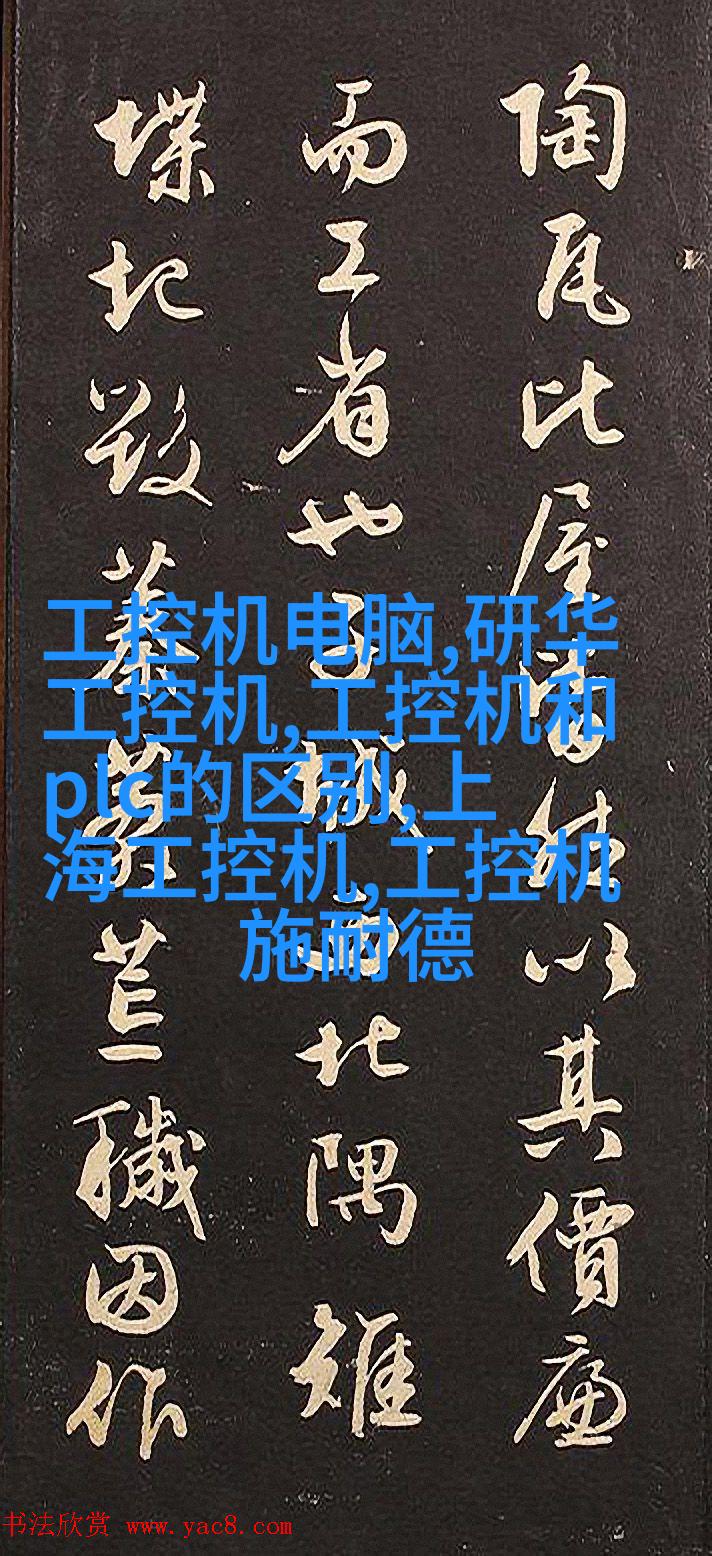 陶瓦比屋皆然以其價廉
而工省也子城西北隅雉
堞圮毀蓁莽荒穢因作
工控机电脑,研华
工控机,工控机和
plc的区别,上
海工控机,工控机
施耐德
书法欣赏 www.yac8.com